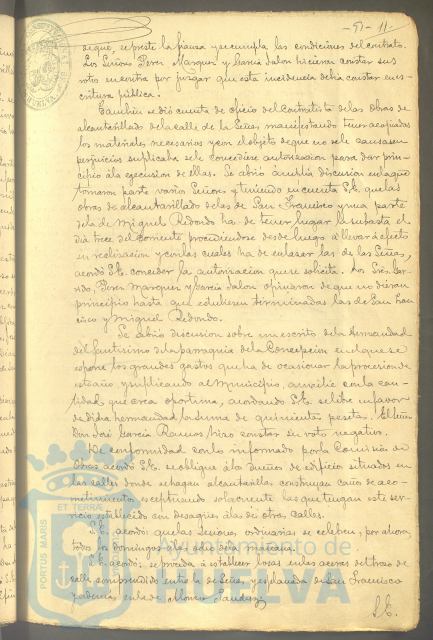 -51- 11-
de que, se preste la fianza y se cumpla las condiciones del contrato.
Los Señores Perez Marquez y Garcia Jalon hicieron constar sus
votos en contra por juzgar que esta incidencia debia constar en es-
critura pública.
Tambien se dió cuenta de oficio del Contratista de las Obras de
alcantarillado de la calle de la Señas manifestando tener acopiados
los materiales necesarios y con el objeto de que no se le causasen
perjuicios suplicaba se le concediese autorizacion para dar prin-
cipio á la ejecucion de ellas. Se abrió ámplia discusion en la que
tomaron parte varios Señores y teniendo en cuenta S.E. que las
obras de alcantarillado de las de San Francisco y una parte
de la de Miguel Redondo ha de tener lugar la subasta el
dia trece del corriente procediendose desde luego á llevar á efecto
su realizacion y con las cuales ha de enlazar las de las Señas,
acordó S.E. conceder la autorizacion que se solicita. Los Sres.
Perez Marquez y Garcia Jalon opinaron de que no dieran
principio hasta que estubiesen terminadas las de San Fran
cisco y Miguel Redondo.
Se abrió discusion sobre un escrito de la Hermandad
del Santisimo de la parroquia de la Concepcion en el que se
expone los grandes gastos que ha de ocasionar la procesion de
este año y suplicando al Municipio, auxilie con la can-
tidad que crea oportuna, acordando S.E. se libre en favor
de dicha hermandad la suma de quinientas pesetas. El Señor
Don José Garcia Ramos hizo constar su voto negativo.
De conformidad con lo informado por la Comision de
Obras acordó S.E. se obligue á los Dueños de edificios situados en
las calles donde se hagan alcantarillas construyan caños de aco-
metimientos exceptuando solamente los que tengan este ser-
vicio establecido con desagües á las de otras calles.
S.E. acordó: que las sesiones ordinarias se celebren, por ahora,
todos los domingos á las ocho de la mañana.
S.E. acordó: se proceda á establecer losas en las aceras del trozo de
calle comprendido entre la de Señas, y esplanada de San Francisco
y ademas en la de Alonso Sanchez
S.E.
HUELVA
PORTUS MARIS
ET TERRAE
Ayuntamiento de
HUELVA